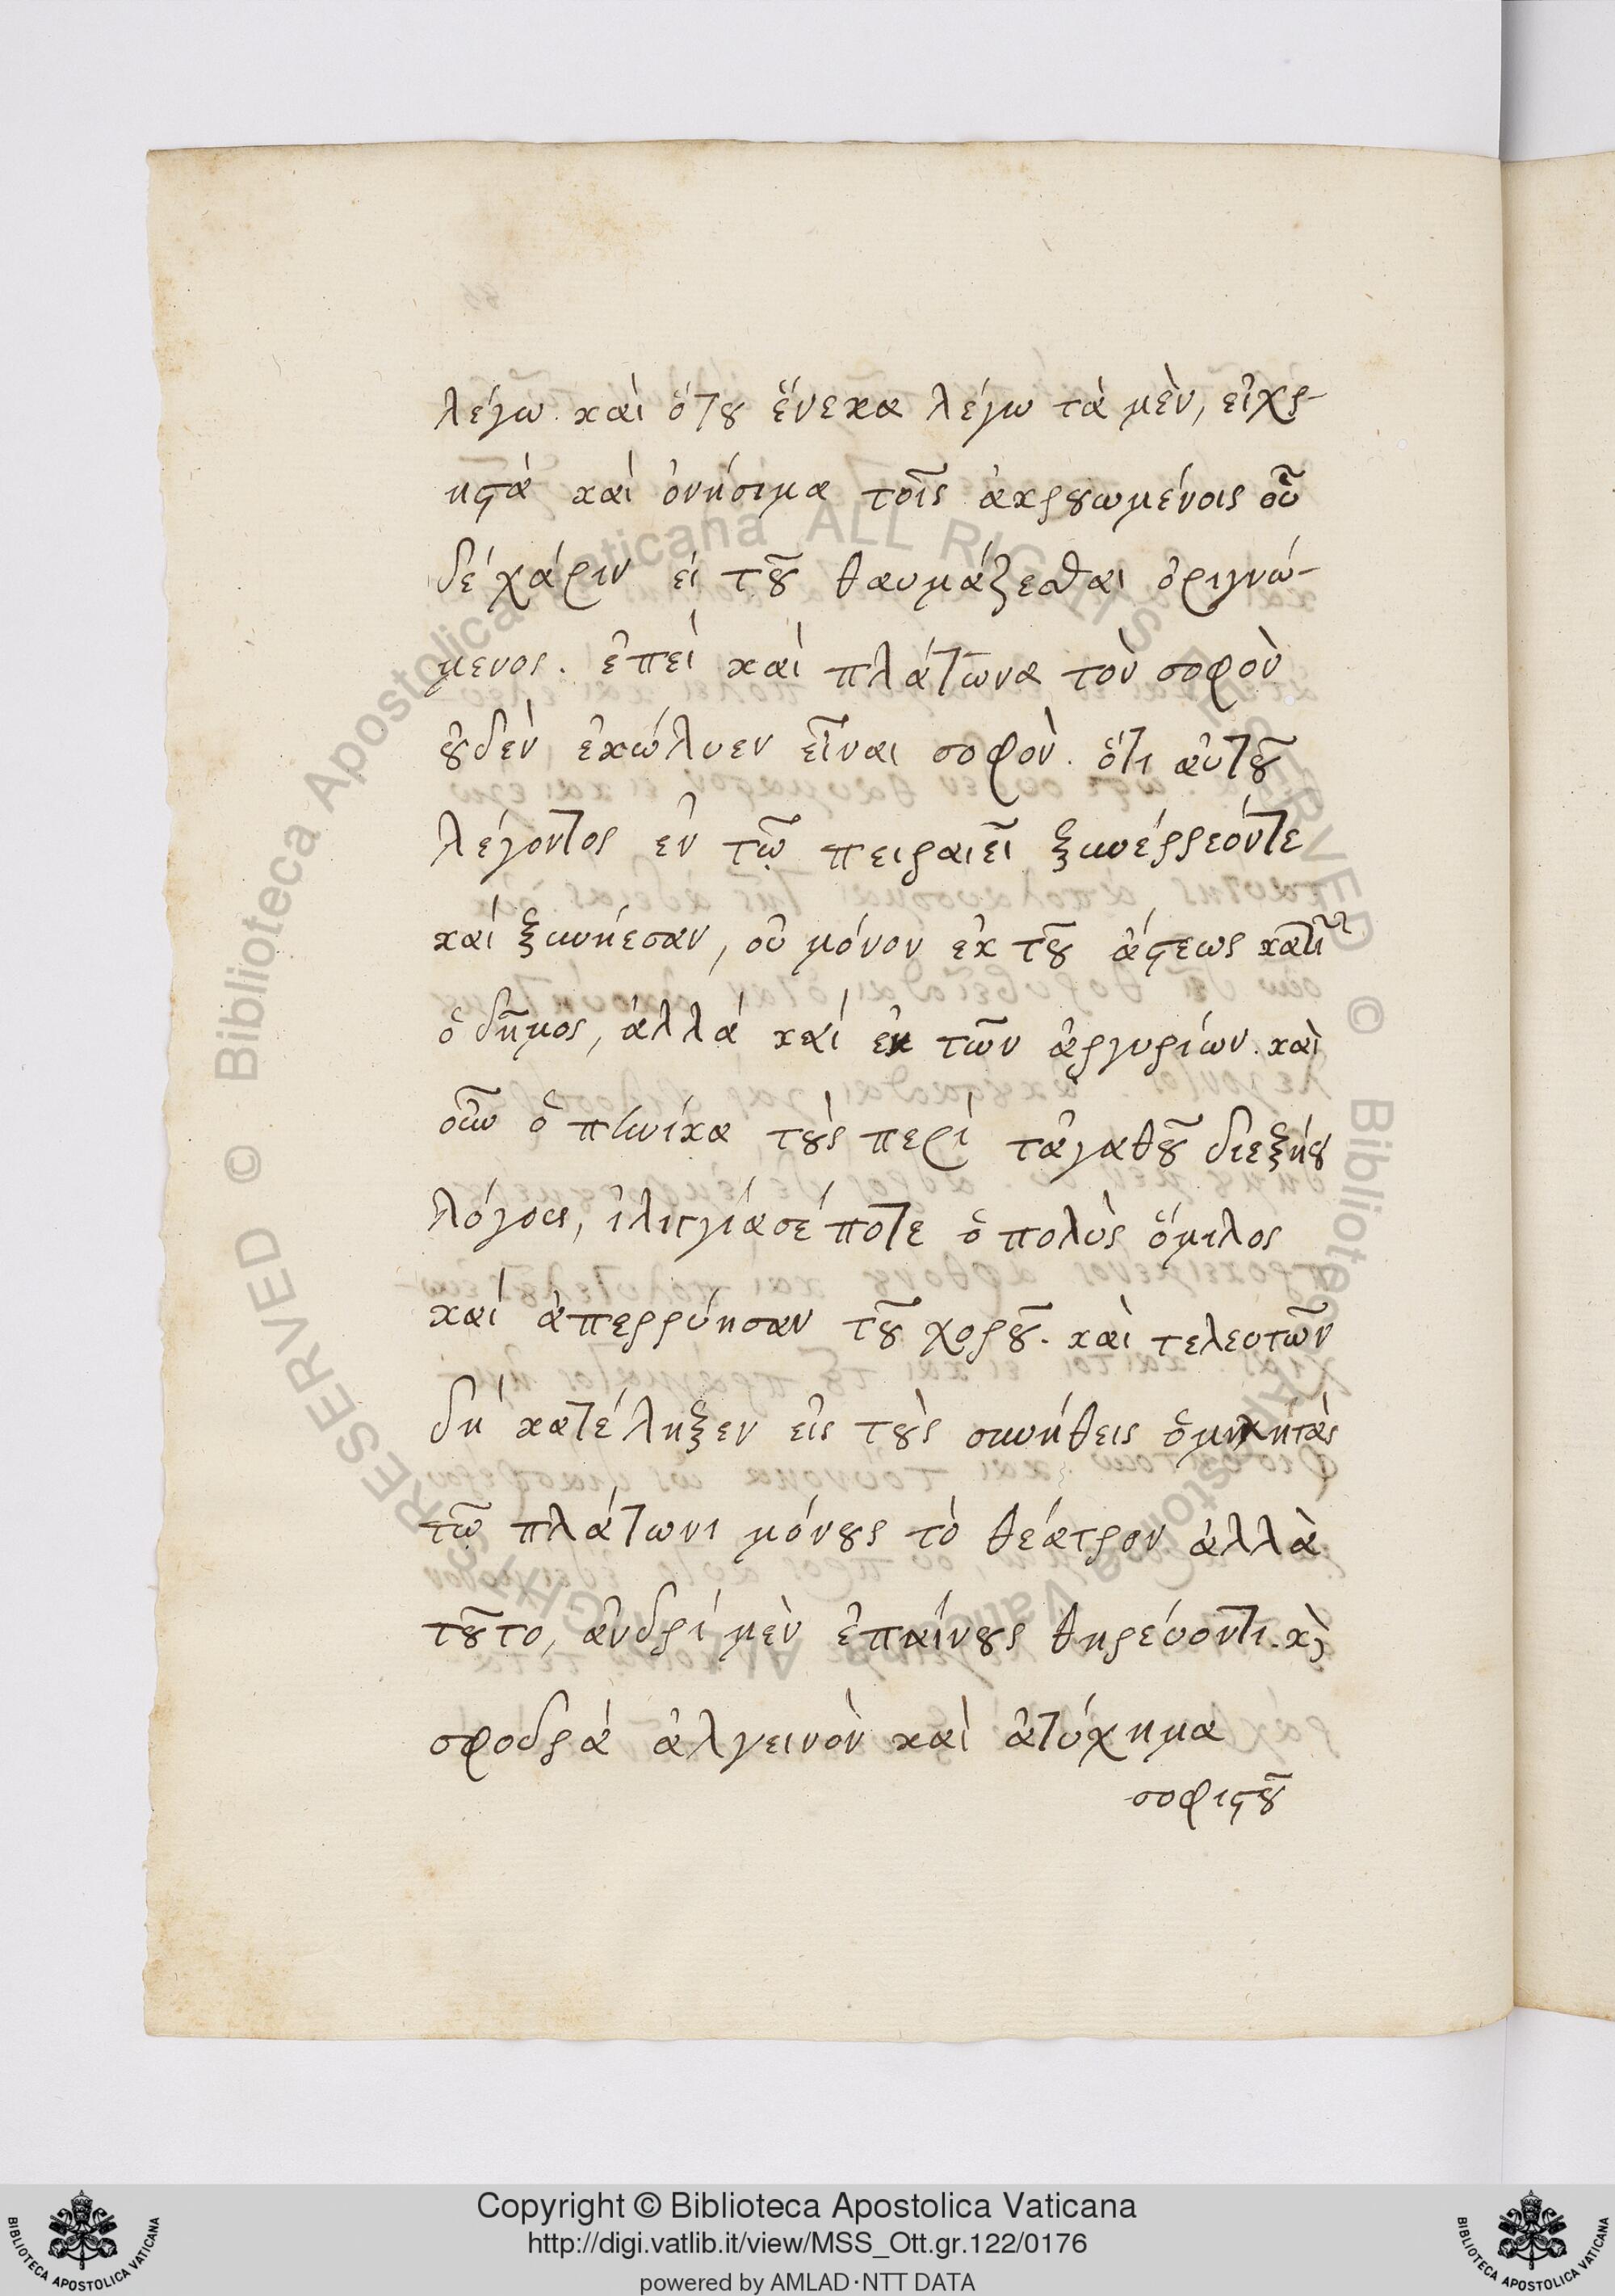 λέγω καὶ ὅτου ἕνεκα λέγω τὰ μὲν, εἰ χρ-
ηστά καὶ ὀνήσιμα τοῖς ἀκροωμένοις οὗ
δέ χάριν εἰ τοῦ θαυμάζεσθαι ὀριγνώ-
μενος. ἐπεὶ καὶ πλάτωνα τὸν σοφὸν
οὐδὲν ἐκώλυεν εἶναι σοφὸν. ὅτι αὐτοῦ
λέγοντος ἐν τῷ πειραιεῖ ξυνέρρεόντε
καὶ ξυνήεσαν, οὐ μόνον ἐκ τοῦ ἄστεως
ὁ δῆμος, ἀλλά καί ἐκ τῶν ἀργυρίων. καὶ
οὖν ὁ πηνίκα τοὺς περὶ τἀγαθοῦ διεξῄου
λόγους, ἰλιγγίασέ ποτε ὁ πολὺς ὅμιλος
καὶ ἀπερρύησαν τοῦ χοροῦ. καὶ τελευτῶν
δή κατέληξεν εἰς τοὺς συνήθεις ὁμιλητὰς
τῷ πλάτωνι μόνους τὸ θέατρον ἀλλὰ
τοῦτο, ἀνδρί μὲν ἐπαίνους θηρεύοντι. καὶ
σφοδρά ἀλγεινὸν καὶ ἀτύχημα
σοφιστοῦ
Copyright © Biblioteca Apostolica Vaticana
http://digi.vatlib.it/view/MSS_Ott.gr.122/0176
powered by AMLAD·NTT DATA
BIBLIOTECA APOSTOLICA VATICANA
BIBLIOTECA APOSTOLICA VATICANA